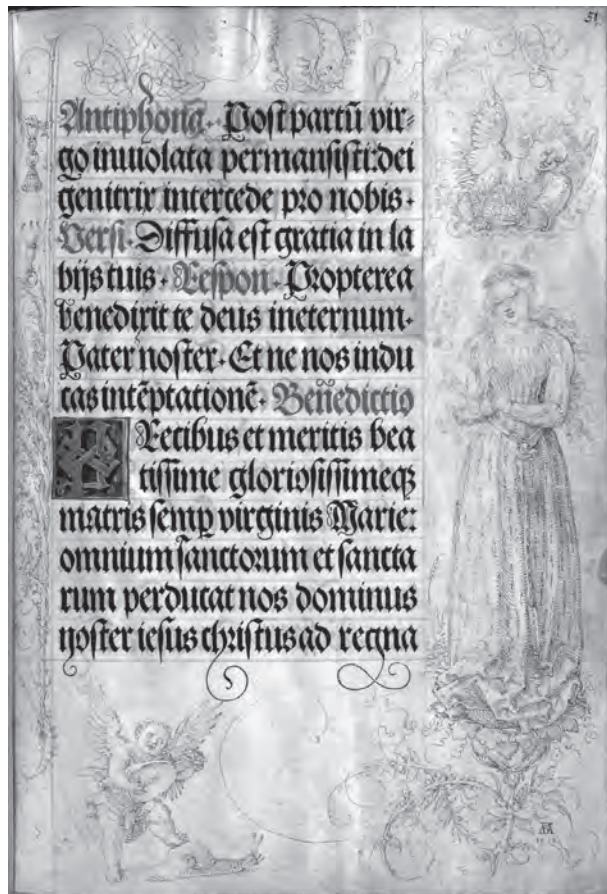 51
Antiphona. Post partū vir⸗
go inuiolata permansisti: dei
genitrix intercede pro nobis.
Versi. Diffusa est gratia in la
bijs tuis. Respon. Propterea
benedixit te deus ineternum.
Pater noster. Et ne nos indu
cas intēptationē.Ben̄edictio
PRecibus et meritis bea
tissime gloriosissimeqꝫ
matris semꝑ virginis Marie:
omnium sanctorum et sancta
rum perducat nos dominus
noster iesus christus ad regna
AD